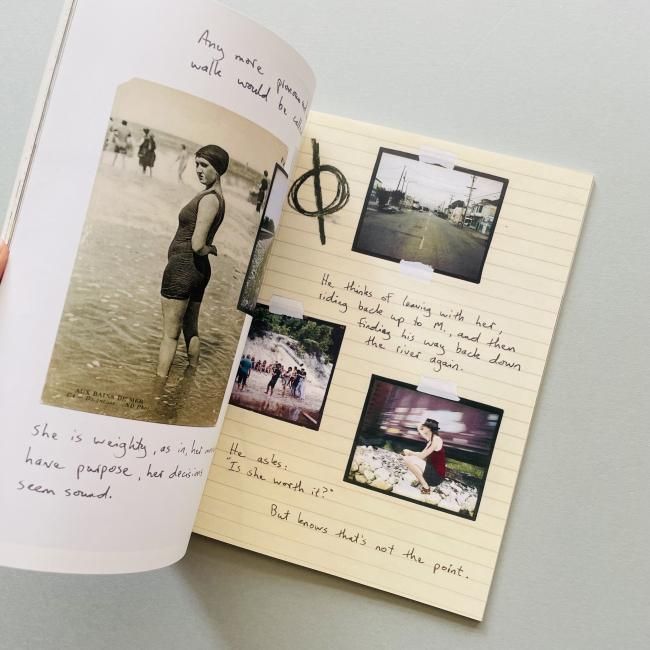 Any more pronounced
walk would be
AUX BAINS DE MER
She is weighty, as in, her
have purpose, her decisions
seem sound.
He thinks of leaving with her,
riding back up to M., and then
finding his way back down
the river again.
He asks:
"Is she worth it?"
But knows that's not the point.